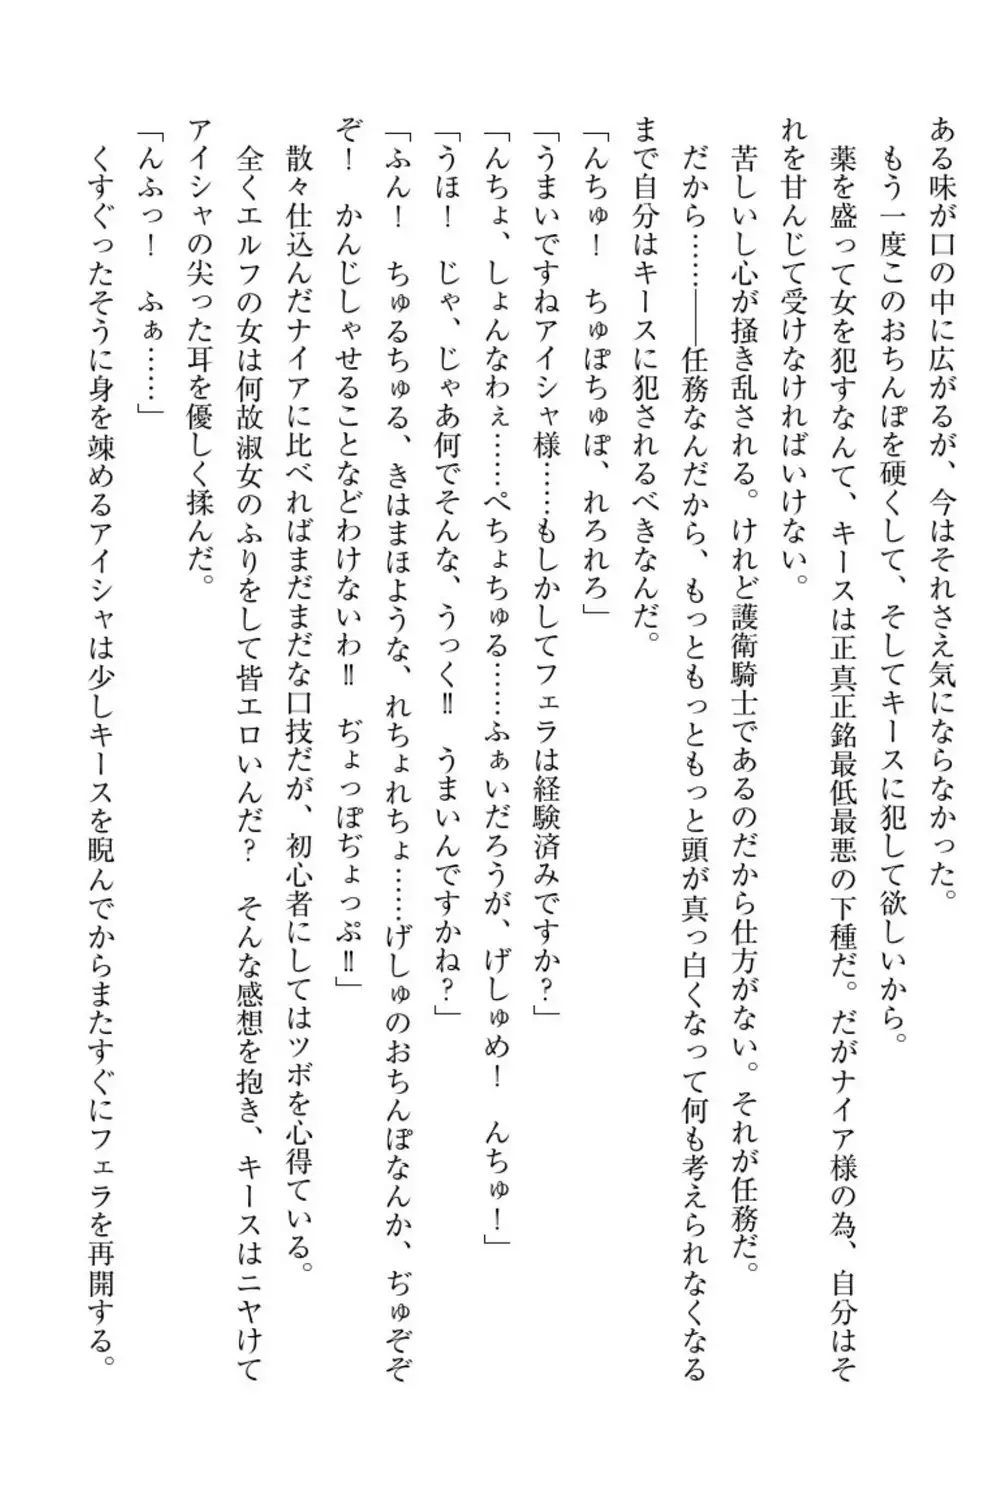 ある味が口の中に広がるが、今はそれさえ気にならなかった。
もう一度このおちんぽを硬くして、そしてキースに犯して欲しいから。
薬を盛って女を犯すなんて、キースは正真正銘最低最悪の下種だ。だがナイア様の為、自分はそ
れを甘んじて受けなければいけない。
苦しいし心が掻き乱される。けれど護衛騎士であるのだから仕方がない。それが任務だ。
だから……――任務なんだから、もっともっともっと頭が真っ白くなって何も考えられなくなる
まで自分はキースに犯されるべきなんだ。
「んちゅ！　ちゅぽちゅぽ、れろれろ」
「うまいですねアイシャ様……もしかしてフェラは経験済みですか？」
「んちょ、しょんなわぇ……ぺちょちゅる……ふぁいだろうが、げしゅめ！　んちゅ！」
「うほ！　じゃ、じゃあ何でそんな、うっく‼　うまいんですかね？」
「ふん！　ちゅるちゅる、きはまほような、れちょれちょ……げしゅのおちんぽなんか、ぢゅぞぞ
ぞ！　かんじしゃせることなどわけないわ‼　ぢょっぽぢょっぷ‼」
散々仕込んだナイアに比べればまだまだな口技だが、初心者にしてはツボを心得ている。
全くエルフの女は何故淑女のふりをして皆エロいんだ？　そんな感想を抱き、キースはニヤけて
アイシャの尖った耳を優しく揉んだ。
「んふっ！　ふぁ……」
くすぐったそうに身を竦めるアイシャは少しキースを睨んでからまたすぐにフェラを再開する。